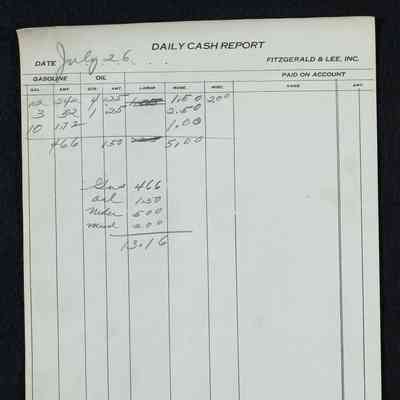 DAILY CASH REPORT
DATE July 26 FITZGERALD & LEE, INC.
GASOLINE OIL PAID ON ACCOUNT
GAL. AMT. QTS. AMT. LABOR MDSE. MISC. NAME AMT.
12 242 4 1.25 1.50 200
3 52 1 .25 2.50
10 172 1.00
466 150 5.00
Gas 466
oil 1.50
Mdse 500
misc 200
13.16